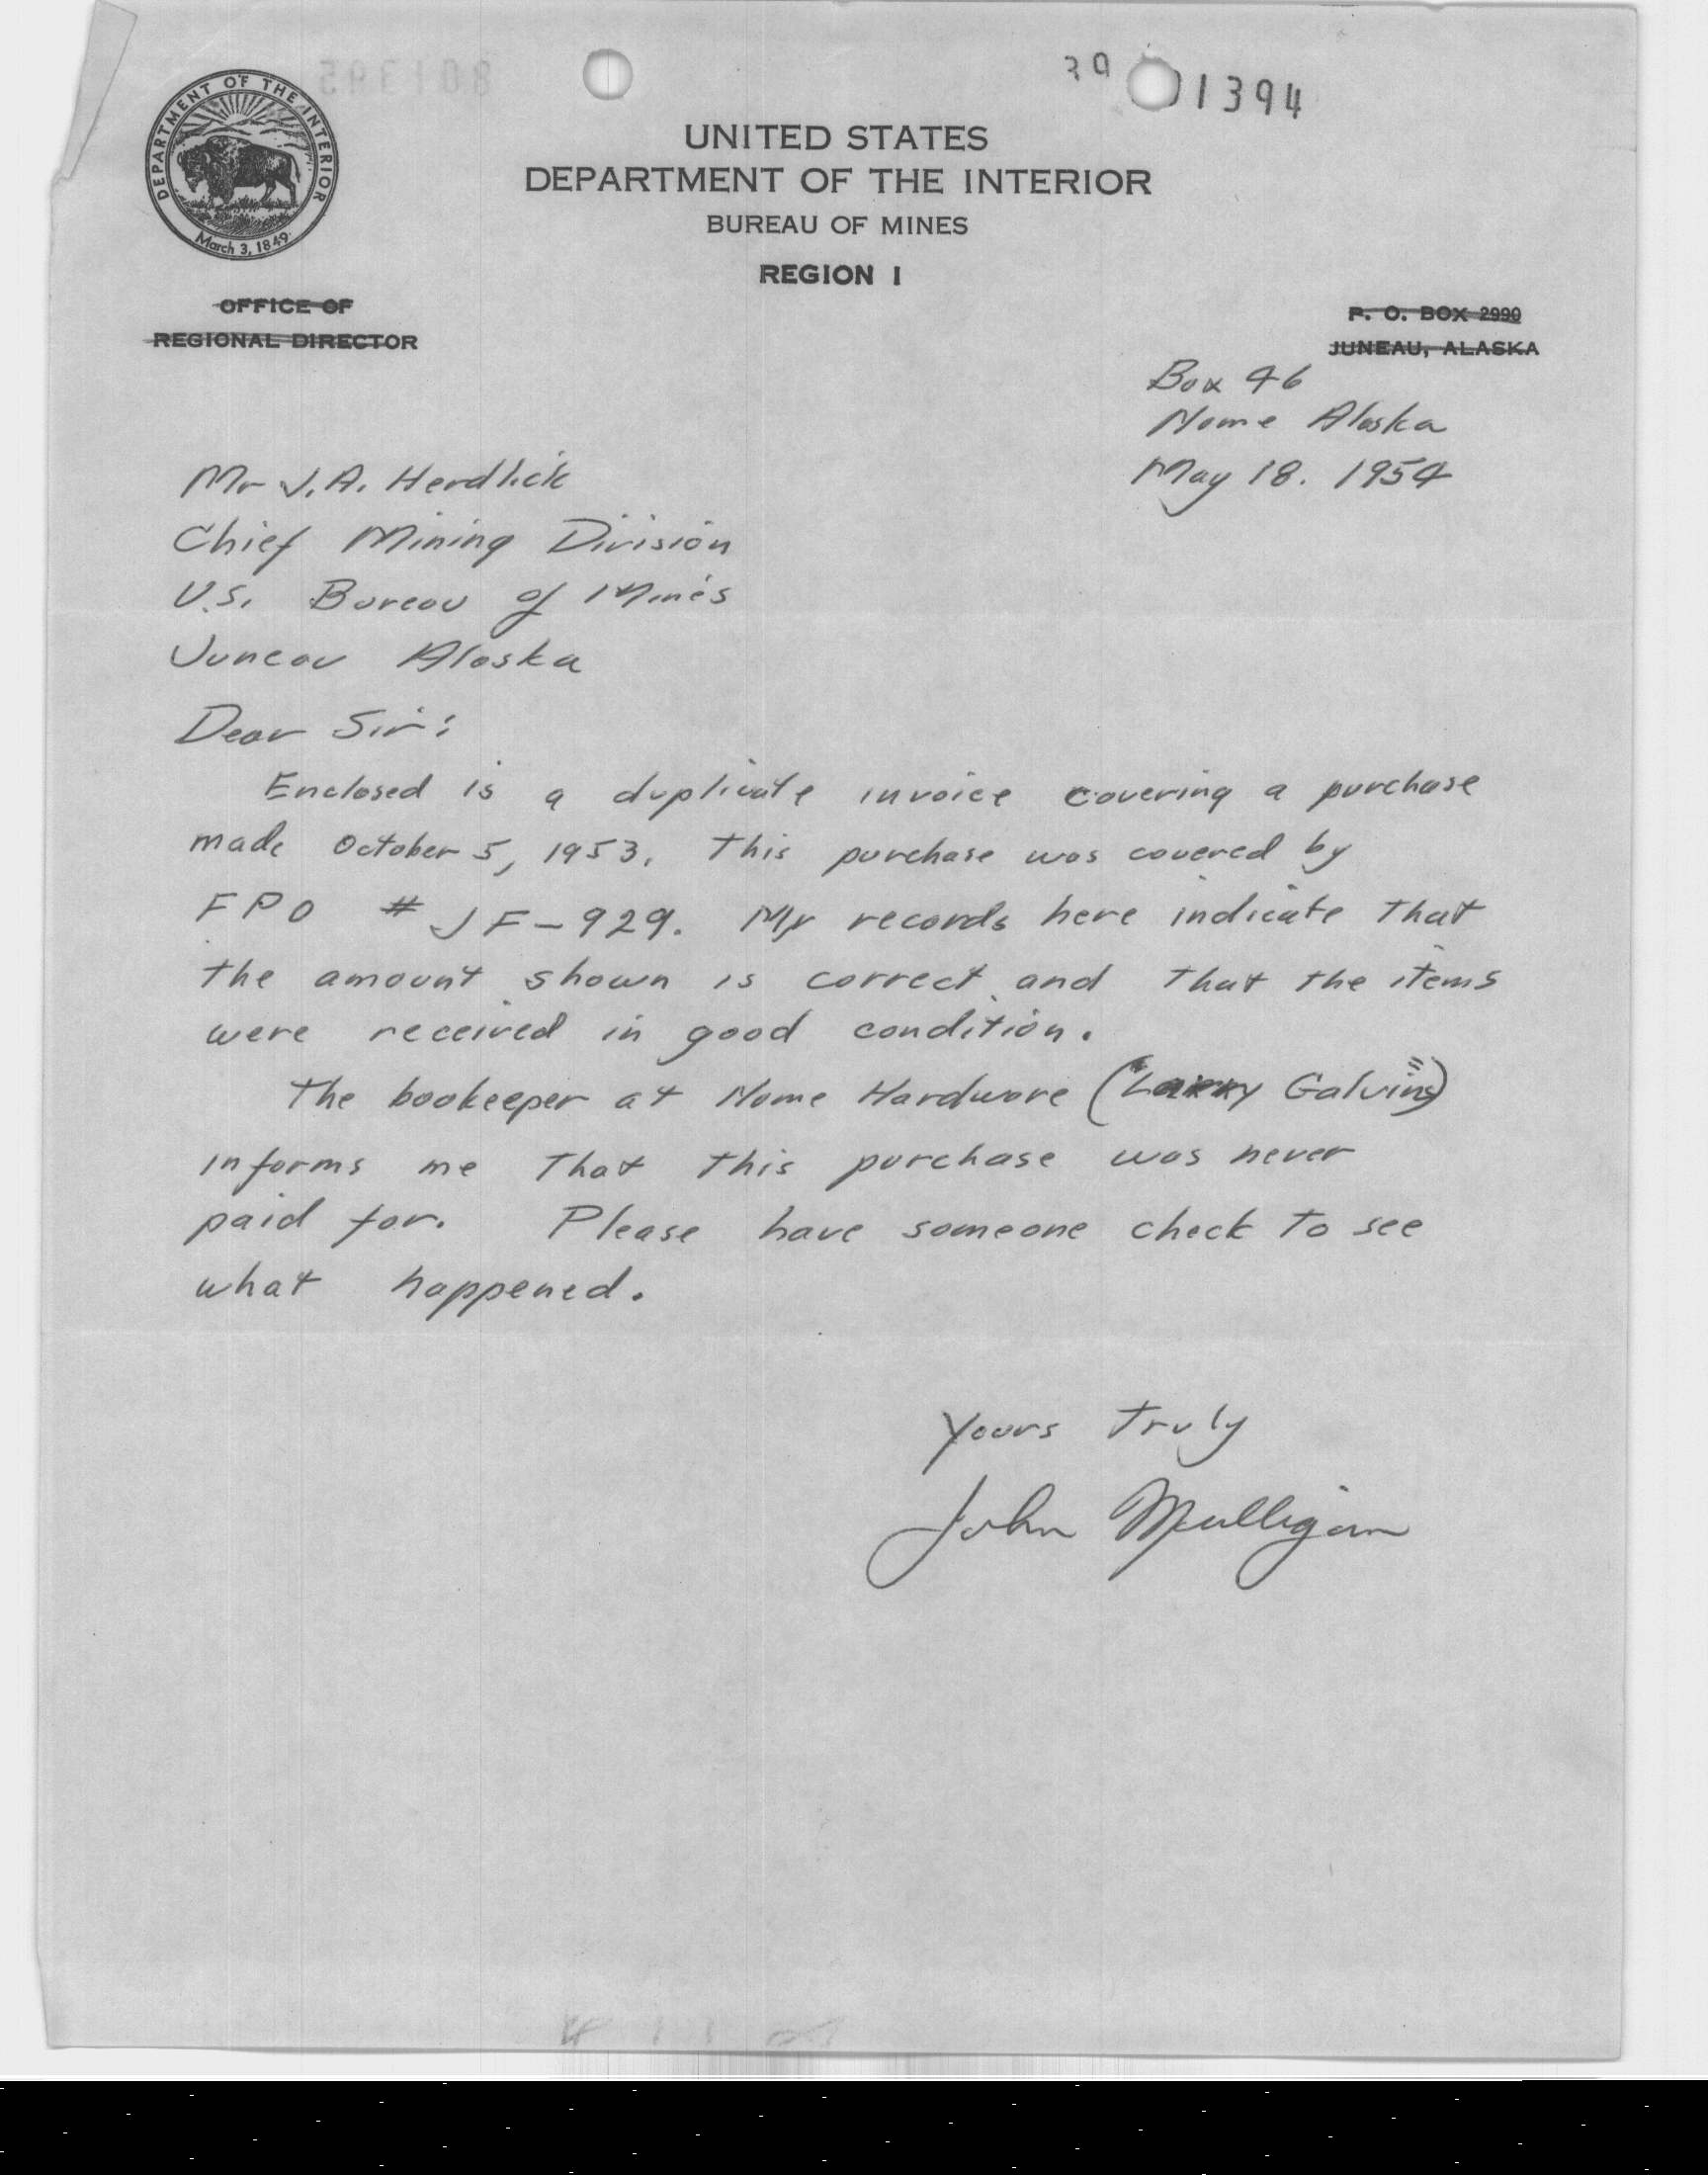 1394
UNITED STATES
DEPARTMENT OF THE INTERIOR
BUREAU OF MINES
REGION I
DEPARTMENT OF THE INTERIOR
March 3, 1849
OFFICE OF
REGIONAL DIRECTOR
P. O. BOX 2990
JUNEAU, ALASKA
Box 46
Nome Alaska
May 18. 1954
Mr J.A. Herdlick
Chief Mining Division
U.S. Bureau of Mines
Juneau Alaska
Dear Sir:
Enclosed is a duplicate invoice covering a purchase
made October 5, 1953. This purchase was covered by
FPO # JF-929. My records here indicate that
the amount shown is correct and that the items
were received in good condition.
The bookeeper at Nome Hardware (Larry Galvin)
informs me that this purchase was never
paid for. Please have someone check to see
what happened.
Yours truly
John Mulligan